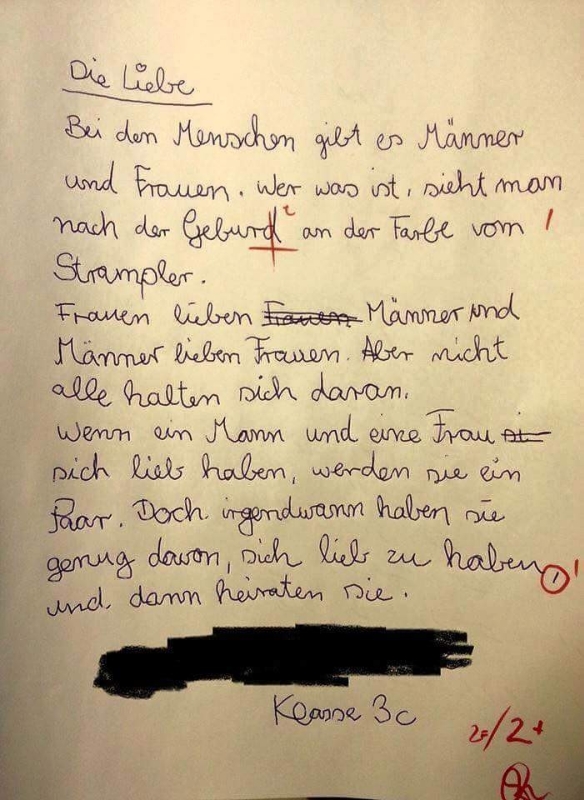 Die Liebe
Bei den Menschen gibt es Männer
und Frauen. Wer was ist, sieht man
nach der Geburd t an der Farbe vom
Strampler.
Frauen lieben Frauen Männer und
Männer lieben Frauen. Aber nicht
alle halten sich daran.
Wenn ein Mann und eine Frau si
sich lieb haben, werden sie ein
Paar. Doch irgendwann haben sie
genug davon, sich lieb zu haben,
und dann heiraten sie.
Klasse 3c
2+